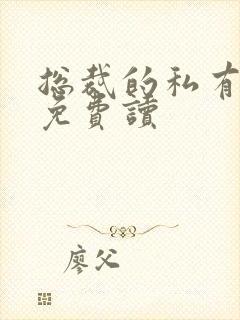 总裁的私有
免費讀
廖父